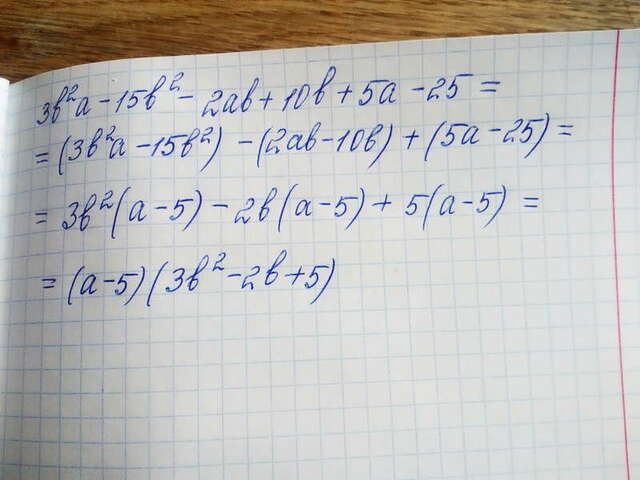 3b²a - 15b² - 2ab + 10b + 5a - 25 =
= (3b²a - 15b²) - (2ab - 10b) + (5a - 25) =
= 3b²(a - 5) - 2b(a - 5) + 5(a - 5) =
= (a - 5)(3b² - 2b + 5)